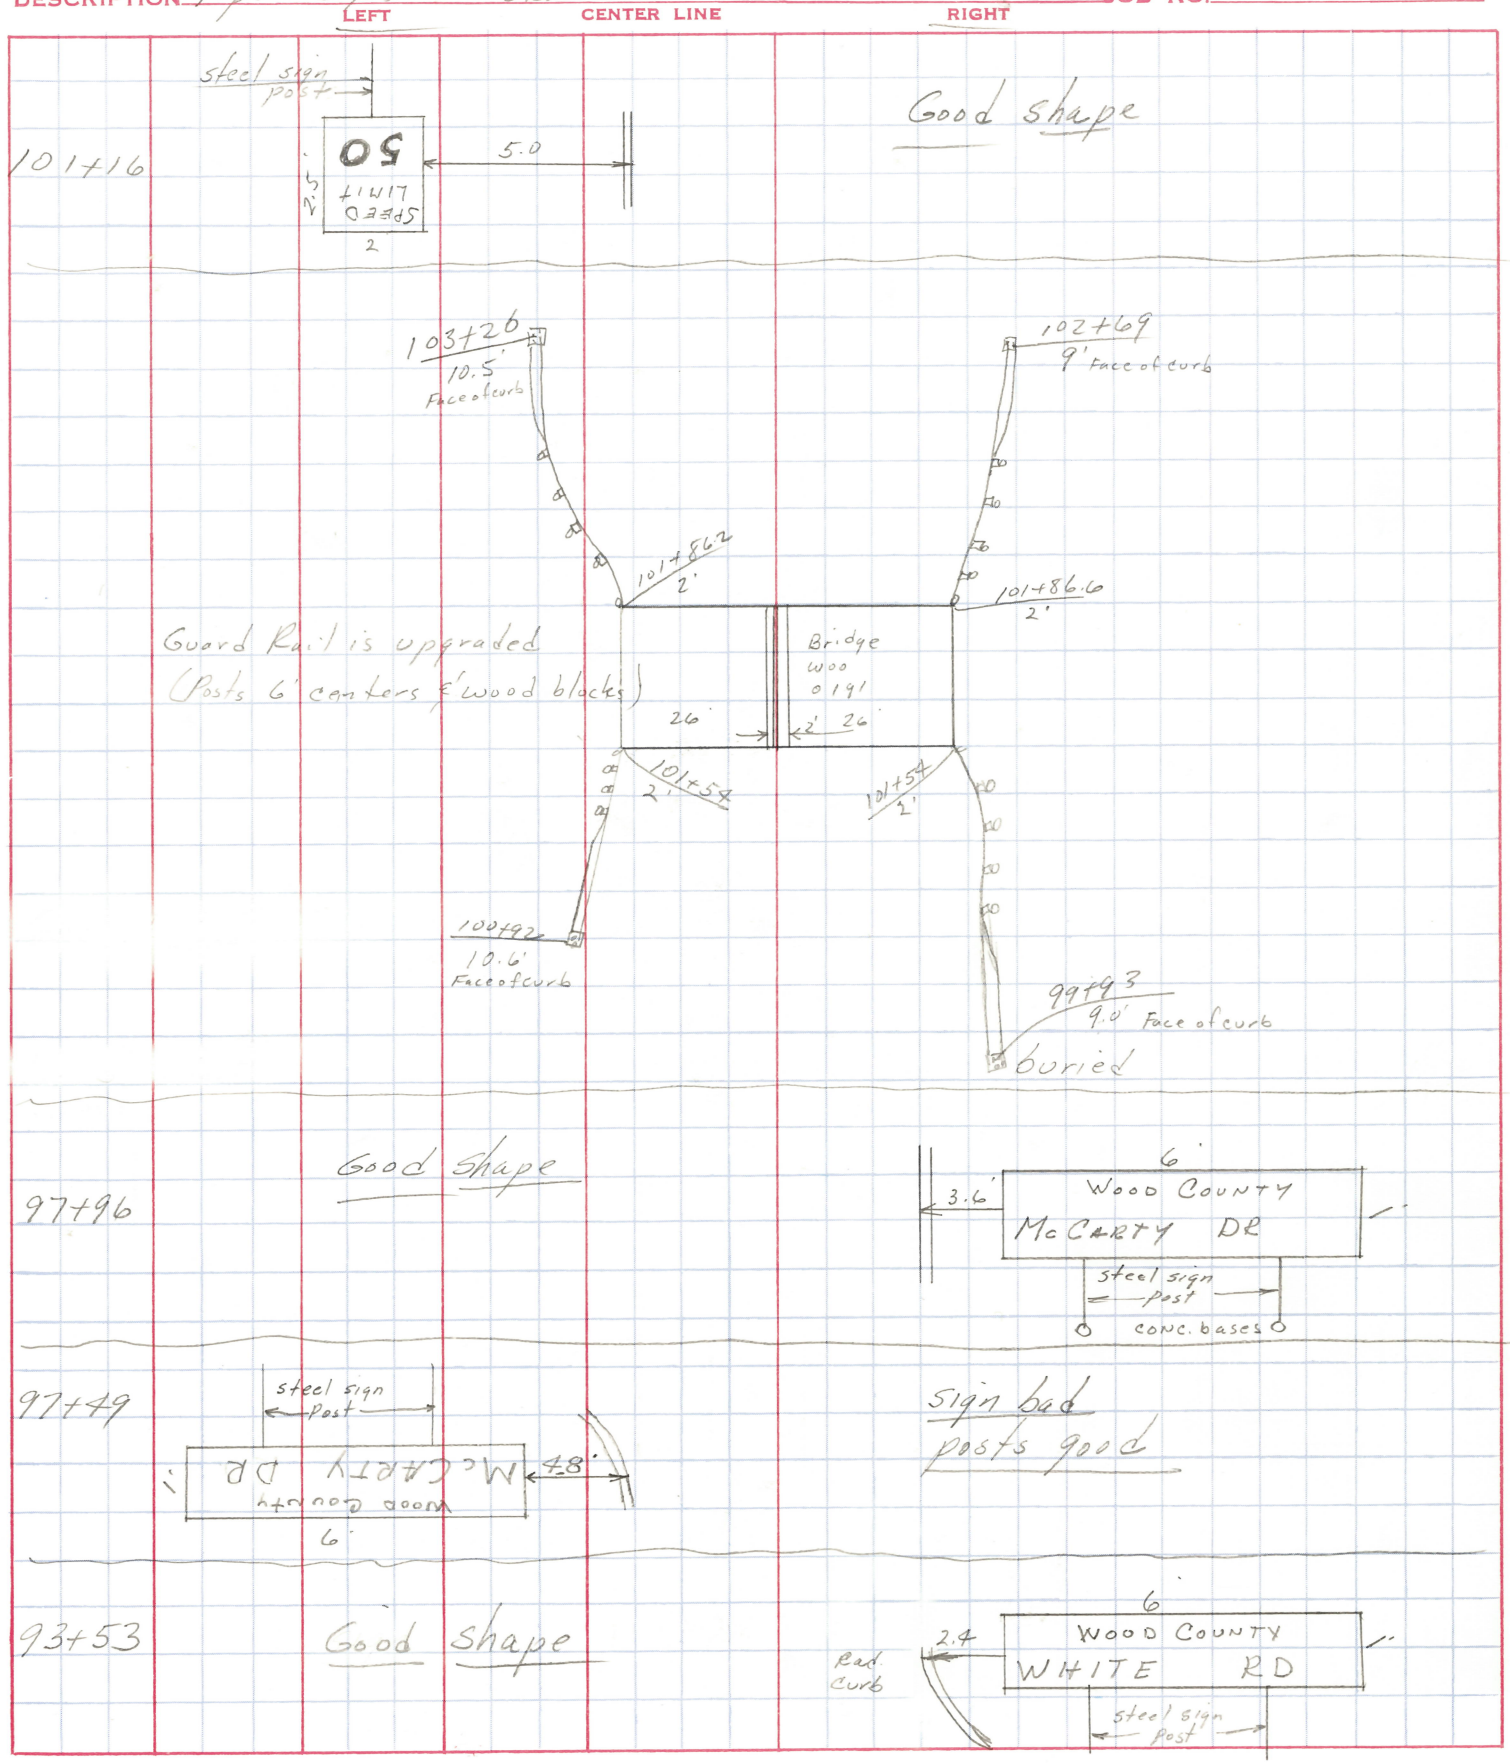 DESCRIPTION
LEFT
CENTER LINE
RIGHT
JOB NO.
steel sign
post
Good shape
101+16
50
LIMIT
SPEED
2.5'
2
5.0
103+26
10.5'
Face of curb
102+69
9' Face of curb
101+86.2
2'
101+86.6
2'
Guard Rail is upgraded
(Posts 6' centers & wood blocks)
Bridge
WOO
0191
26'
2'
26'
101+54
2'
101+54
2'
100+92
10.6'
Face of curb
99+93
9.0' Face of curb
buried
Good shape
97+96
3.6'
6'
WOOD COUNTY
McCARTY DR
steel sign
Post
conc. bases
97+49
steel sign
Post
McCARTY DR
WOOD COUNTY
6'
4.8'
1'
sign bad
posts good
93+53
Good shape
Rad.
curb
2.4
6'
WOOD COUNTY
WHITE RD
1'
steel sign
Post